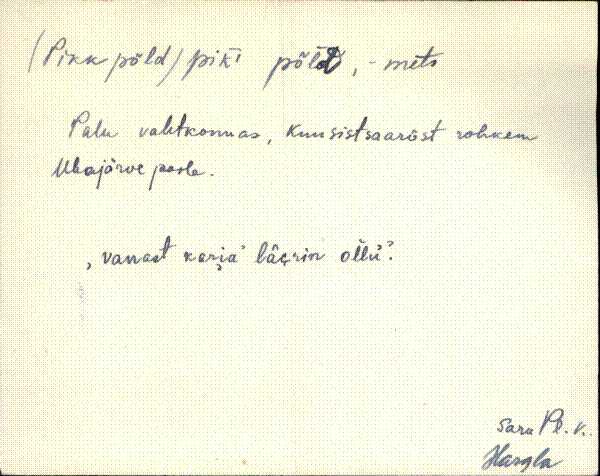 (Pikk põld) pikk põld, -mets
Palu vahtkonnas, Kuusistsaarõst rohkem
Uhajärve poole.
„vanast karja' läärin ollu'".
Saru
Hargla